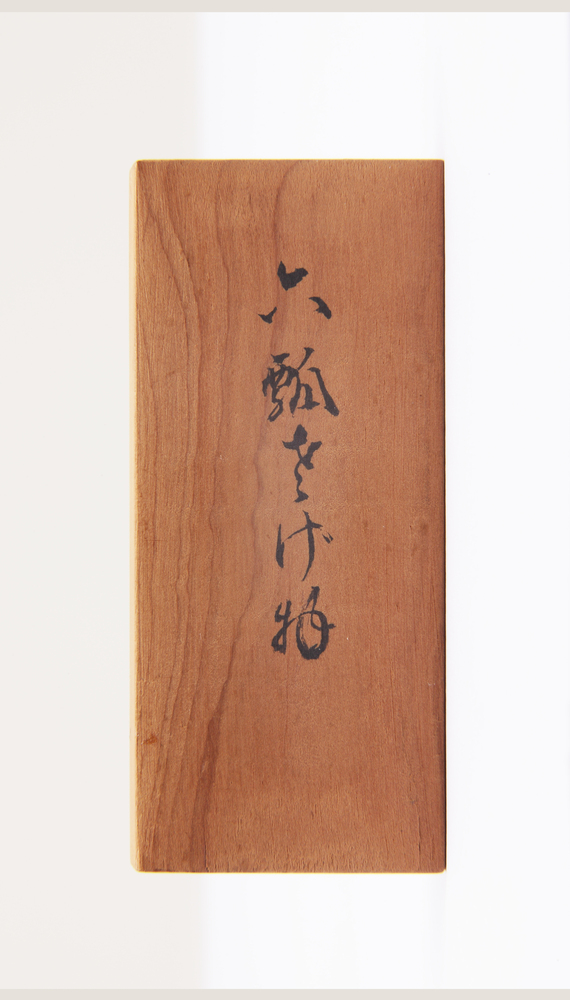 六瓢さげ物